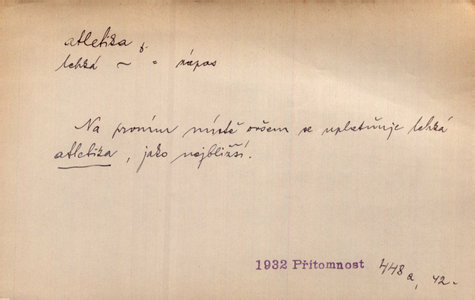 atletika f.
lehká ~ » zápas
Na prvním místě ovšem se uplatňuje lehká
atletika, jako nejbližší.
1932 Přítomnost 448 a, 42.